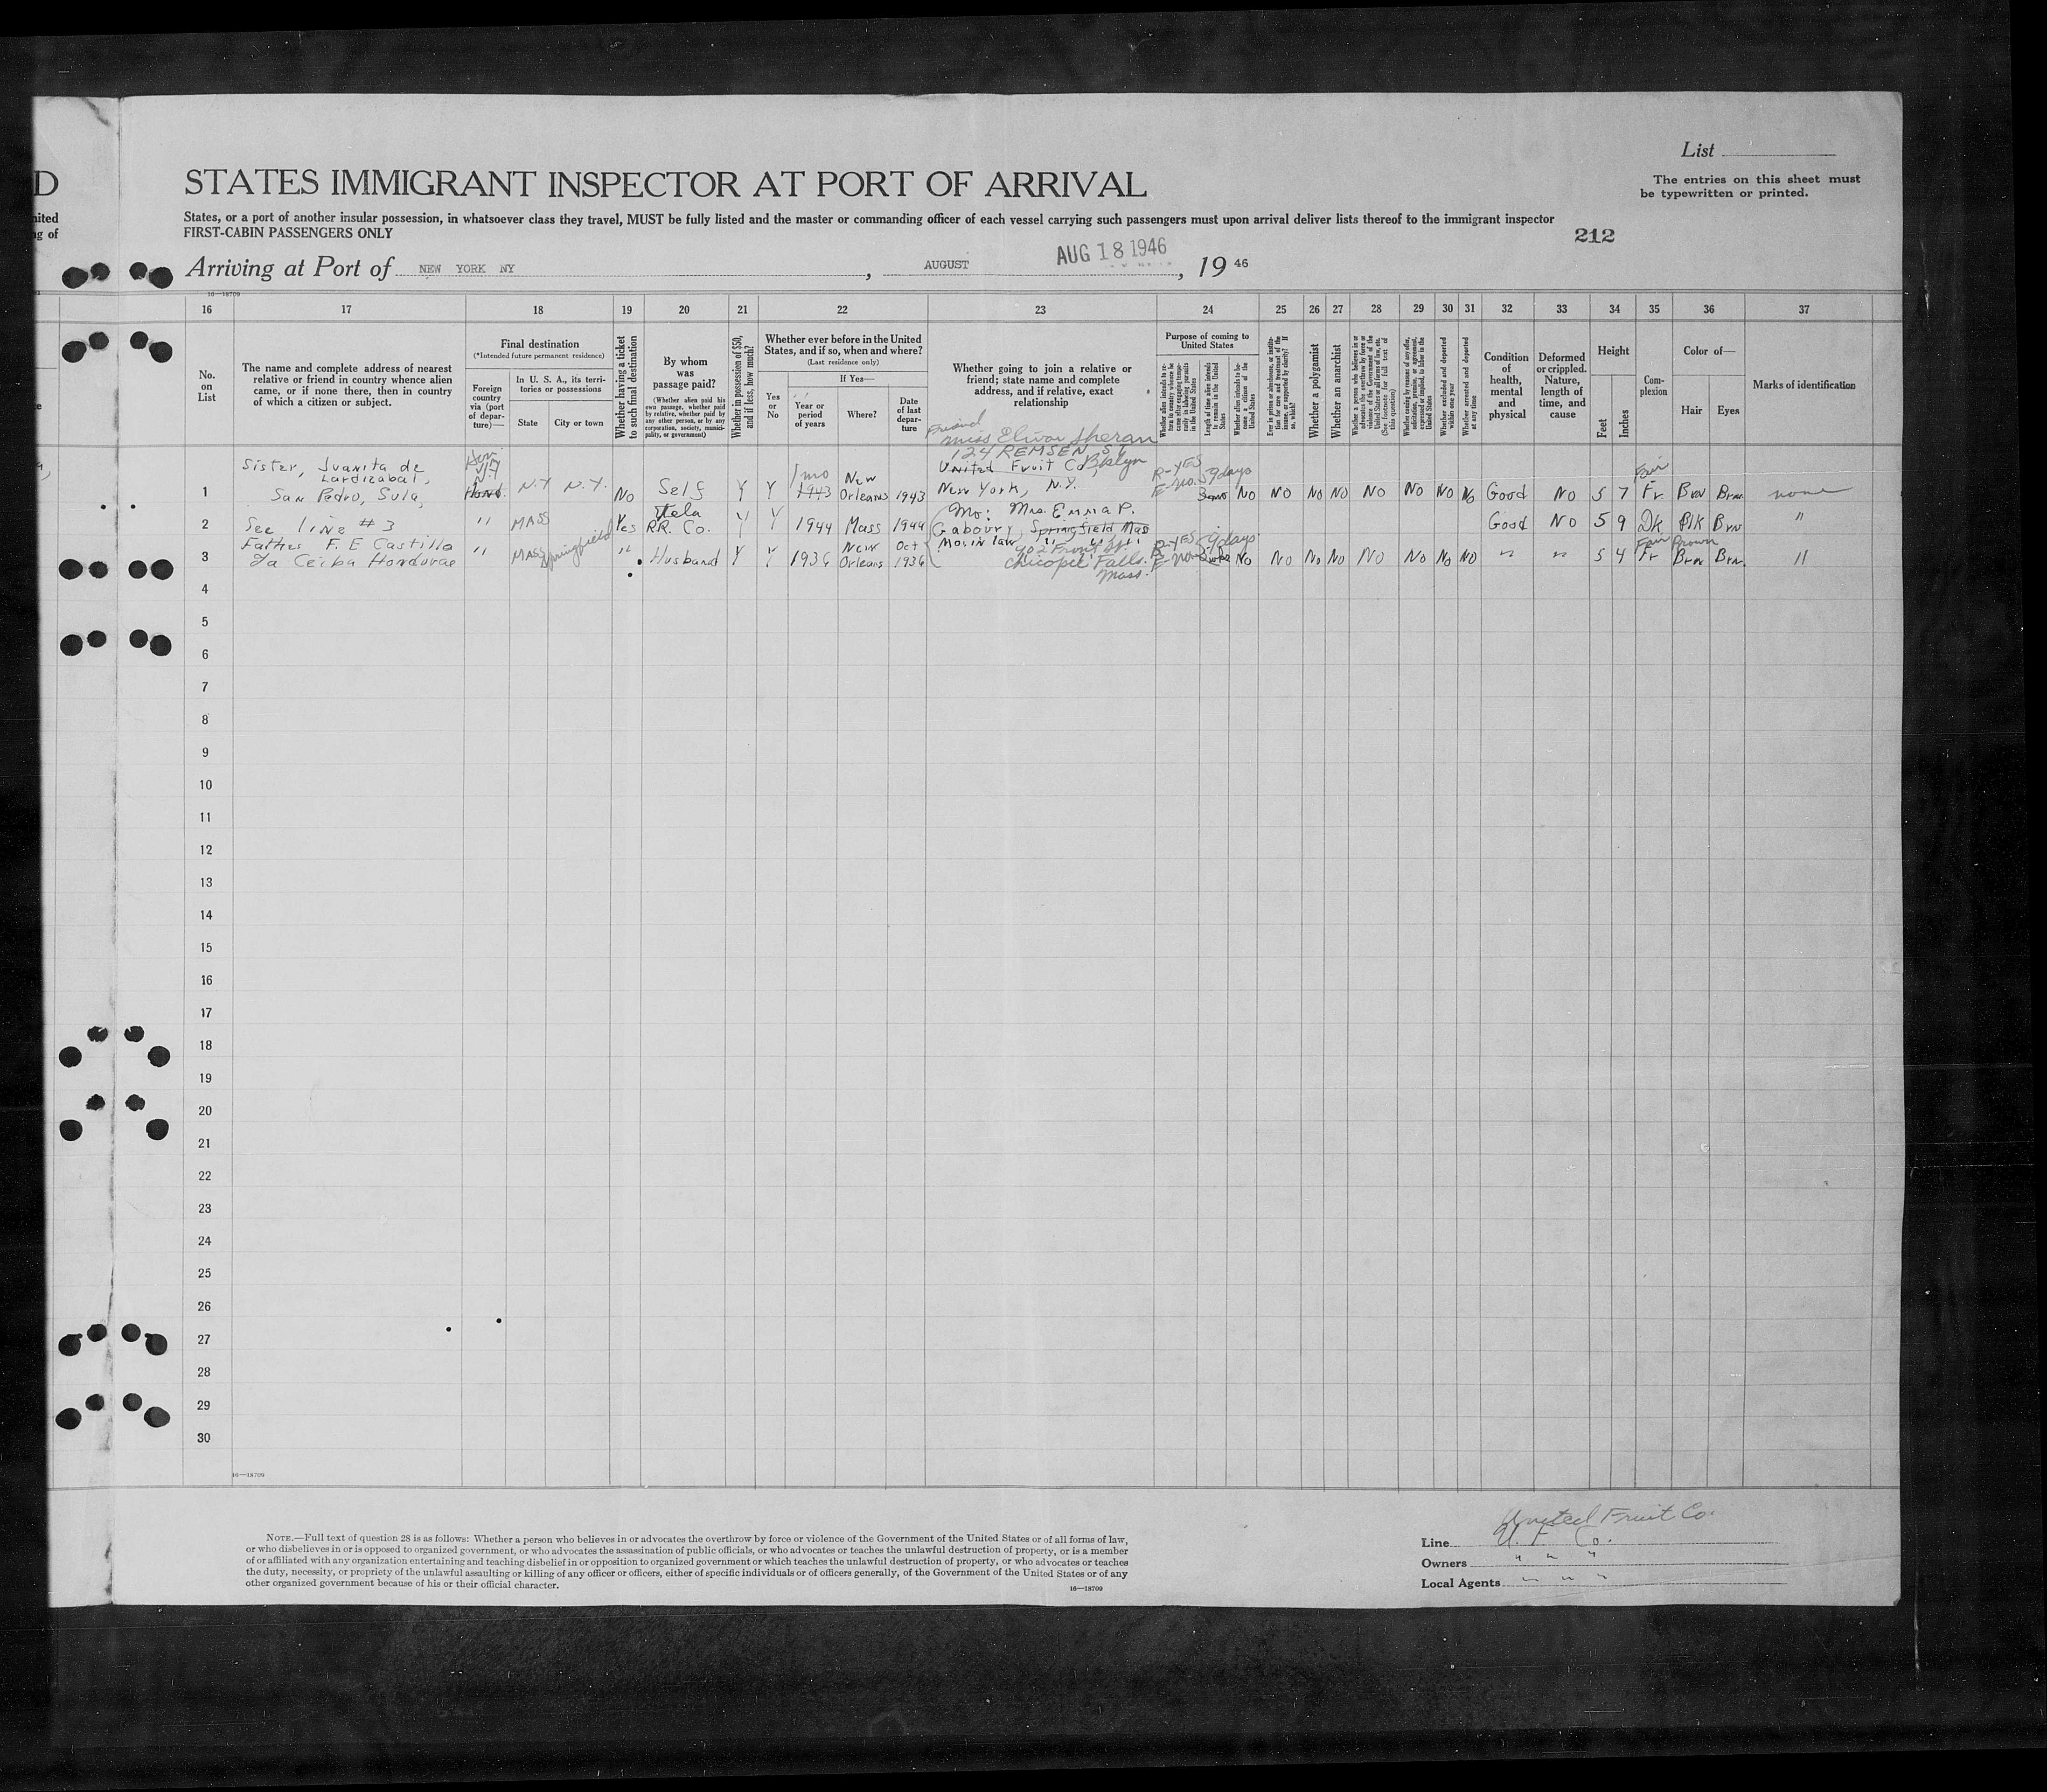 D
STATES IMMIGRANT INSPECTOR AT PORT OF ARRIVAL
List
The entries on this sheet must
be typewritten or printed.
nited
ng of
States, or a port of another insular possession, in whatsoever class they travel, MUST be fully listed and the master or commanding officer of each vessel carrying such passengers must upon arrival deliver lists thereof to the immigrant inspector
FIRST-CABIN PASSENGERS ONLY
212
Arriving at Port of NEW YORK NY, AUGUST AUG 18 1946, 19 46
16—18709
16 17 18 19 20 21 22 23 24 25 26 27 28 29 30 31 32 33 34 35 36 37
No.
on
List
The name and complete address of nearest
relative or friend in country whence alien
came, or if none there, then in country
of which a citizen or subject.
Final destination
(*Intended future permanent residence)
Foreign
country
via (port
of depar-
ture)—
In U. S. A., its terri-
tories or possessions
State
City or town
Whether having a ticket
to such final destination
By whom
was
passage paid?
(Whether alien paid his
own passage, whether paid
by relative, whether paid by
any other person, or by any
corporation, society, munici-
pality, or government)
Whether in possession of $50,
and if less, how much?
Whether ever before in the United
States, and if so, when and where?
(Last residence only)
Yes
or
No
If Yes—
Year or
period
of years
Where?
Date
of last
depar-
ture
Whether going to join a relative or
friend; state name and complete
address, and if relative, exact
relationship
Purpose of coming to
United States
Whether alien intends to re-
turn to country whence he
came after engaging tempo-
rarily in laboring pursuits
in the United States
Length of time alien intends
to remain in the United
States
Whether alien intends to be-
come a citizen of the
United States
Ever in prison or almshouse, or institu-
tion for care and treatment of the
insane, or supported by charity? If
so, which?
Whether a polygamist
Whether an anarchist
Whether a person who believes in or
advocates the overthrow by force or
violence of the Government of the
United States or all forms of law, etc.
(See footnote for full text of
this question)
Whether coming by reason of any offer,
solicitation, promise, or agreement,
expressed or implied, to labor in the
United States
Whether excluded and deported
within one year
Whether arrested and deported
at any time
Condition
of
health,
mental
and
physical
Deformed
or crippled.
Nature,
length of
time, and
cause
Height
Feet
Inches
Com-
plexion
Color of—
Hair
Eyes
Marks of identification
Friend
Miss Elinor Sheran
124 REMSEN ST
Bklyn
1
Sister, Juanita de
Lardizabal,
San Pedro, Sula,
Hon.
Hond.
N.Y N.Y.
No
Self
Y Y
1 mo
1943
New
Orleans
1943
United Fruit Co,
New York, N.Y.
R-YES
E-No.
59 days
3 mo
No NO NO NO NO NO NO No Good NO 5 7
Fair
Fr. Brn Brn. none
2
See line # 3
" MASS Yes
Tela
RR. Co.
Y Y 1944 Mass 1944
Mo: Mrs. Emma P.
Gaboury Springfield Mas
Good NO 5 9 Dk Blk Brn "
3
Father F. E Castillo
La Ceiba Honduras
" MASS Springfield " Husband Y Y 1936
New
Orleans
Oct
1936
Mo in law " " "
402 Front St.
Chicopee Falls.
Mass.
R-YES
E-No
59 days
No NO No NO NO NO No NO " " 5 4
Fair Brown
Fr Brn Brn. "
4
5
6
7
8
9
10
11
12
13
14
15
16
17
18
19
20
21
22
23
24
25
26
27
28
29
30
16—18709
NOTE.—Full text of question 28 is as follows: Whether a person who believes in or advocates the overthrow by force or violence of the Government of the United States or of all forms of law,
or who disbelieves in or is opposed to organized government, or who advocates the assassination of public officials, or who advocates or teaches the unlawful destruction of property, or is a member
of or affiliated with any organization entertaining and teaching disbelief in or opposition to organized government or which teaches the unlawful destruction of property, or who advocates or teaches
the duty, necessity, or propriety of the unlawful assaulting or killing of any officer or officers, either of specific individuals or of officers generally, of the Government of the United States or of any
other organized government because of his or their official character.
16—18709
United Fruit Co.
Line U. F. Co.
Owners " " "
Local Agents " " "